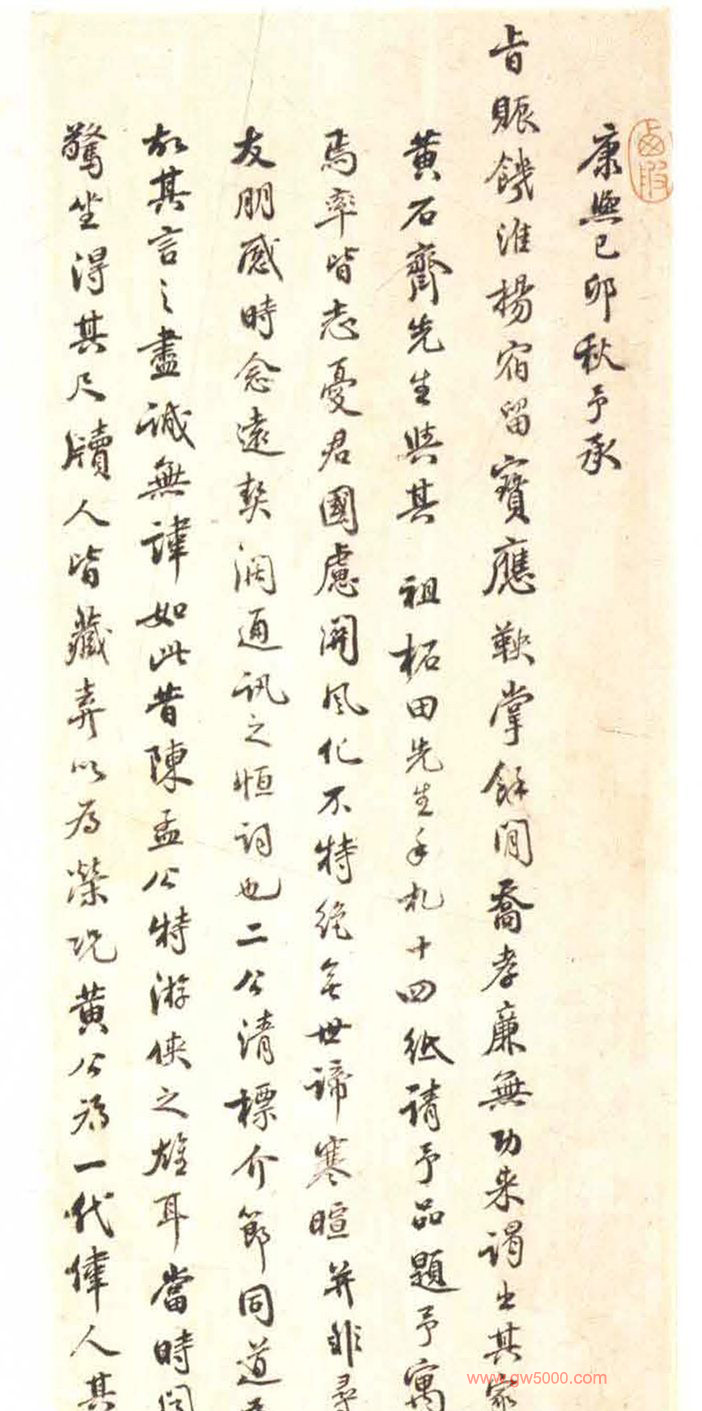 康熙己卯秋予承
旨賑饑淮揚宿留寶應鞅掌餘閒喬孝廉無功来謁出其家
黄石齋先生與其 祖柘田先生手札十四紙請予品題予寓
焉率皆志憂君國慮関風化不特絶無世諦寒暄并非尋
友朋感時念遠契濶通訊之恒詞也二公清標介節同道
故其言之盡誠無諱如此昔陳孟公特游俠之雄耳當時
驚坐得其尺牘人皆藏弆以為榮况黄公為一代偉人其
www.gw5000.com